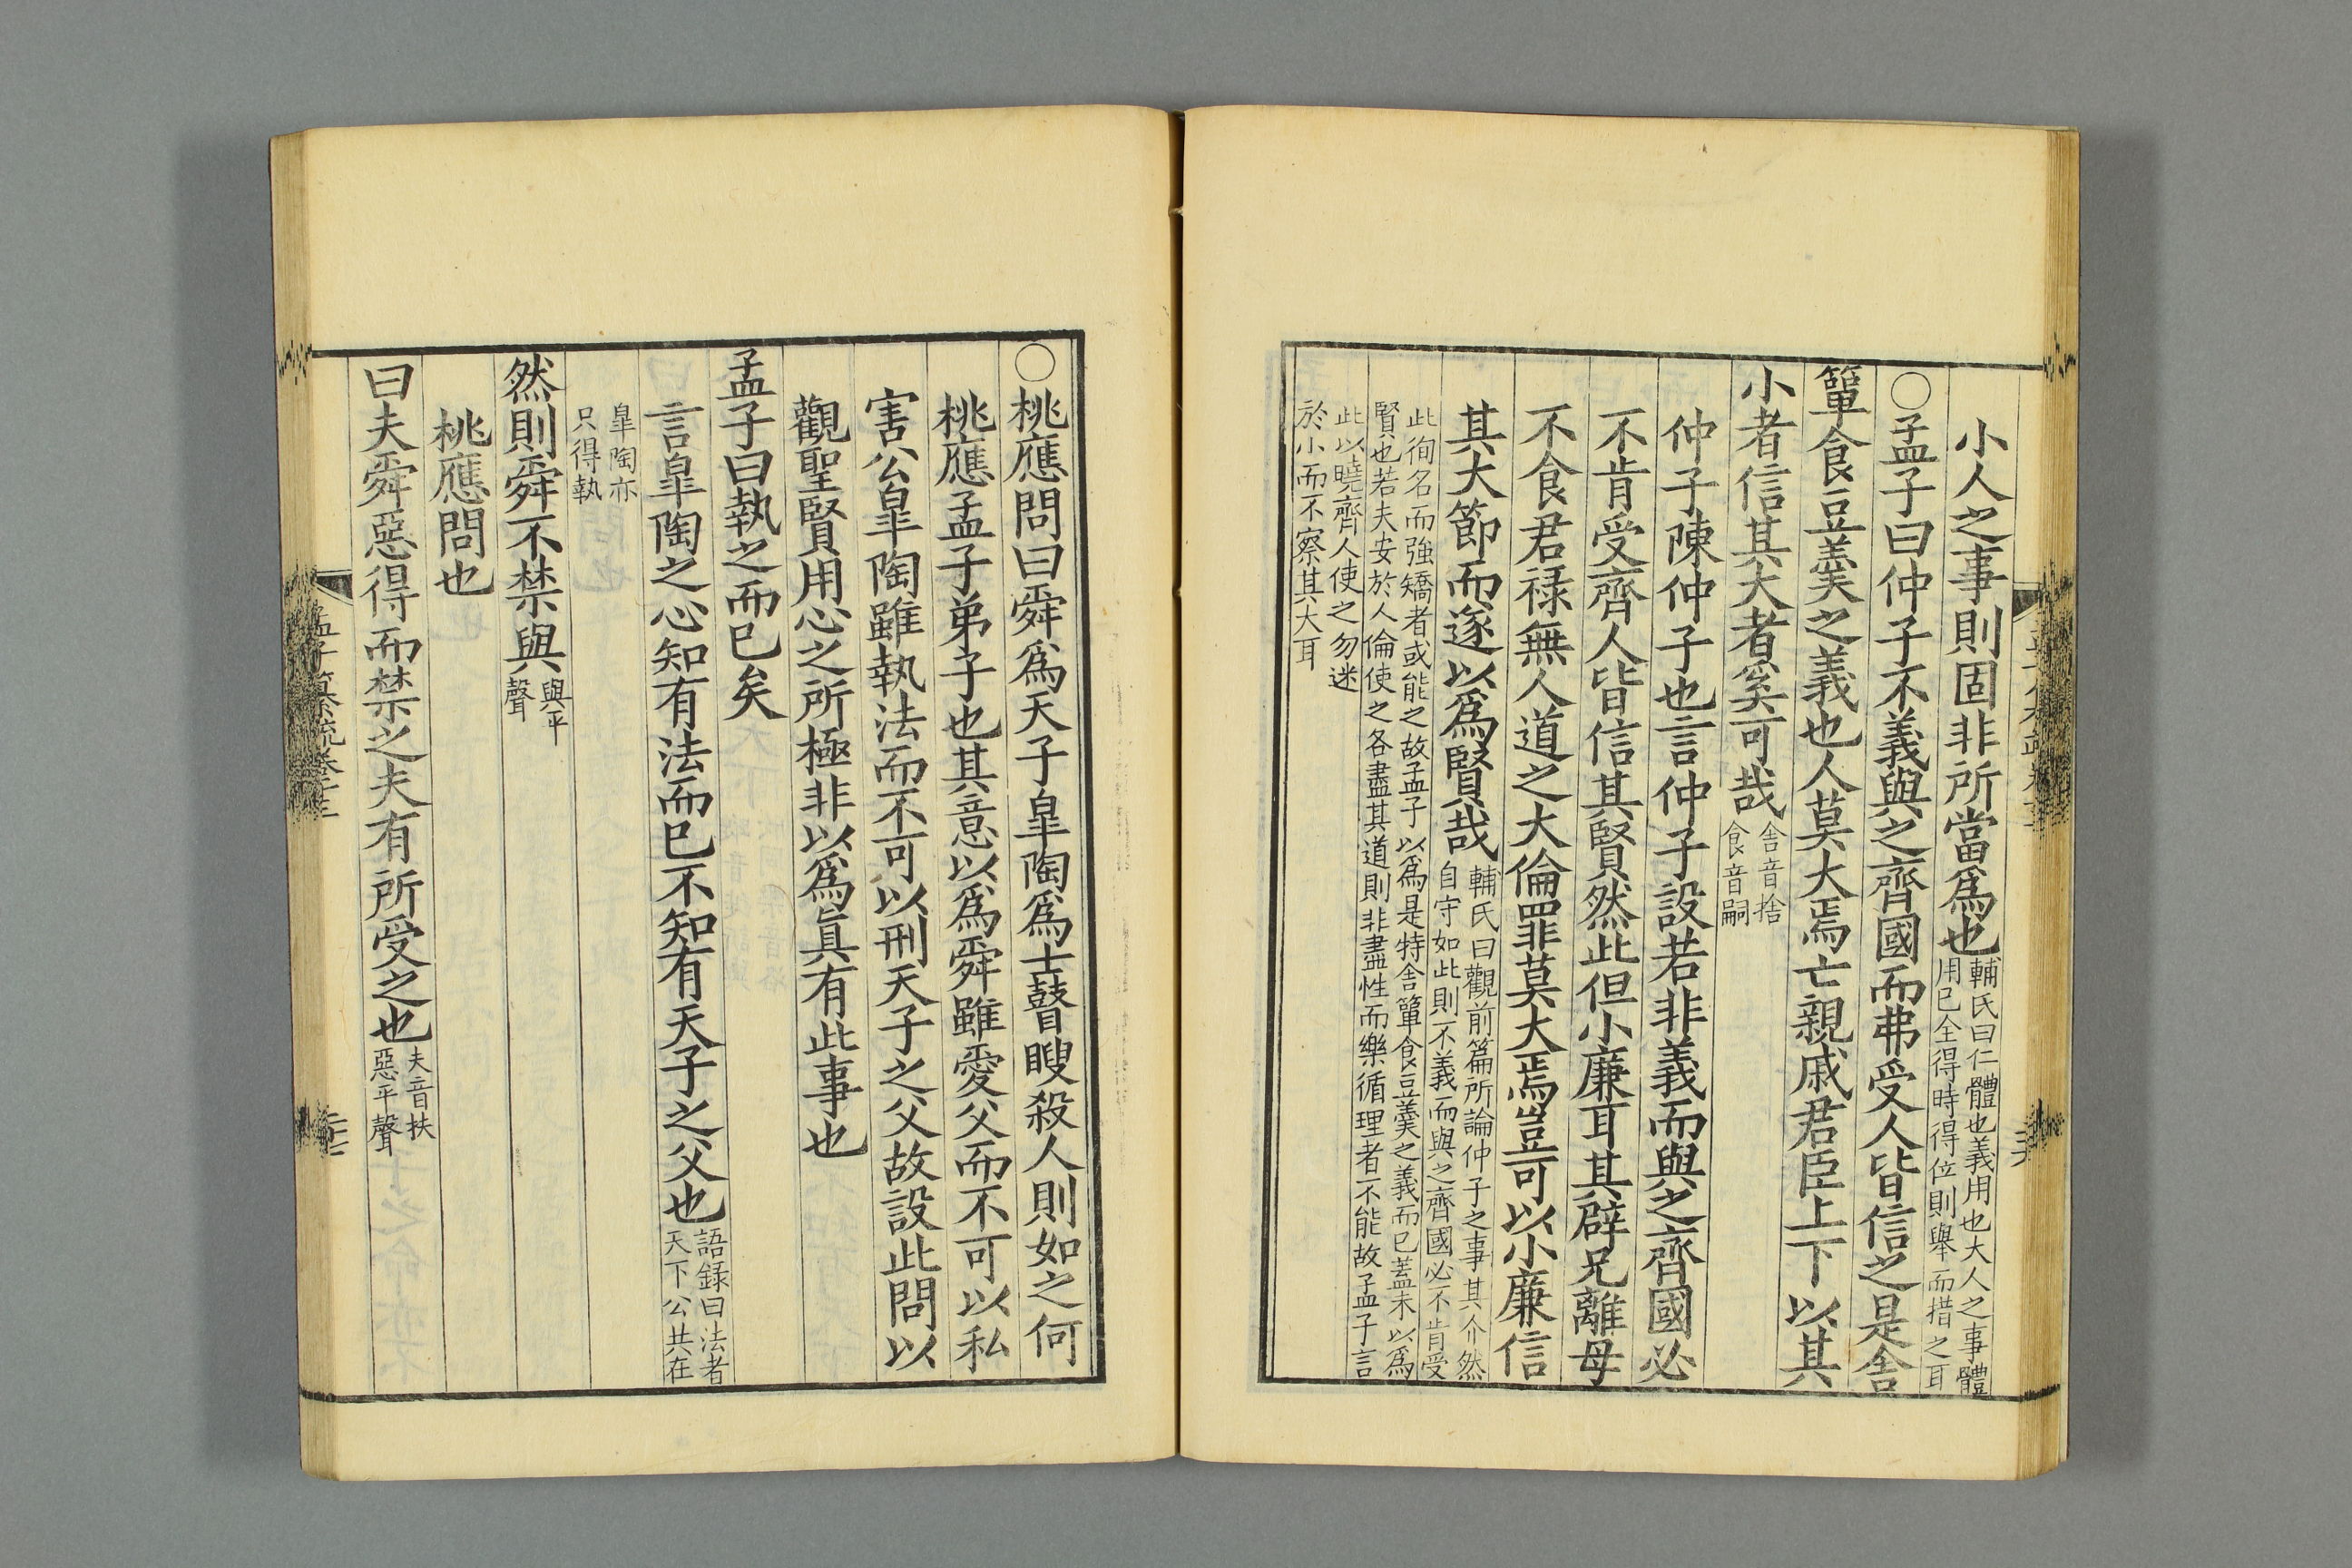 小人之事則固非所當爲也輔氏曰仁體也義用也大人之事體用已全得時得位則舉而措之耳
○孟子曰仲子不義與之齊國而弗受人皆信之是舍
簞食豆羹之義也人莫大焉亡親戚君臣上下以其
小者信其大者奚可哉舍音捨食音嗣
仲子陳仲子也言仲子設若非義而與之齊國必
不肯受齊人皆信其賢然此但小廉耳其辟兄離母
不食君祿無人道之大倫罪莫大焉豈可以小廉信
其大節而遂以爲賢哉輔氏曰觀前篇所論仲子之事其介然自守如此則不義而與之齊國必不肯受
此徇名而強矯者或能之故孟子以爲是特舍簞食豆羹之義而已蓋未以爲賢也若夫安於人倫使之各盡其道則非盡性而樂循理者不能故孟子言
此以曉齊人使之勿迷於小而不察其大耳
○桃應問曰舜爲天子皐陶爲士瞽瞍殺人則如之何
桃應孟子弟子也其意以爲舜雖愛父而不可以私
害公皐陶雖執法而不可以刑天子之父故設此問以
觀聖賢用心之所極非以爲眞有此事也
孟子曰執之而已矣
言皐陶之心知有法而已不知有天子之父也語錄曰法者天下公共在
皐陶亦只得執
然則舜不禁與與平聲
桃應問也
曰夫舜惡得而禁之夫有所受之也夫音扶惡平聲
孟子纂疏卷十三